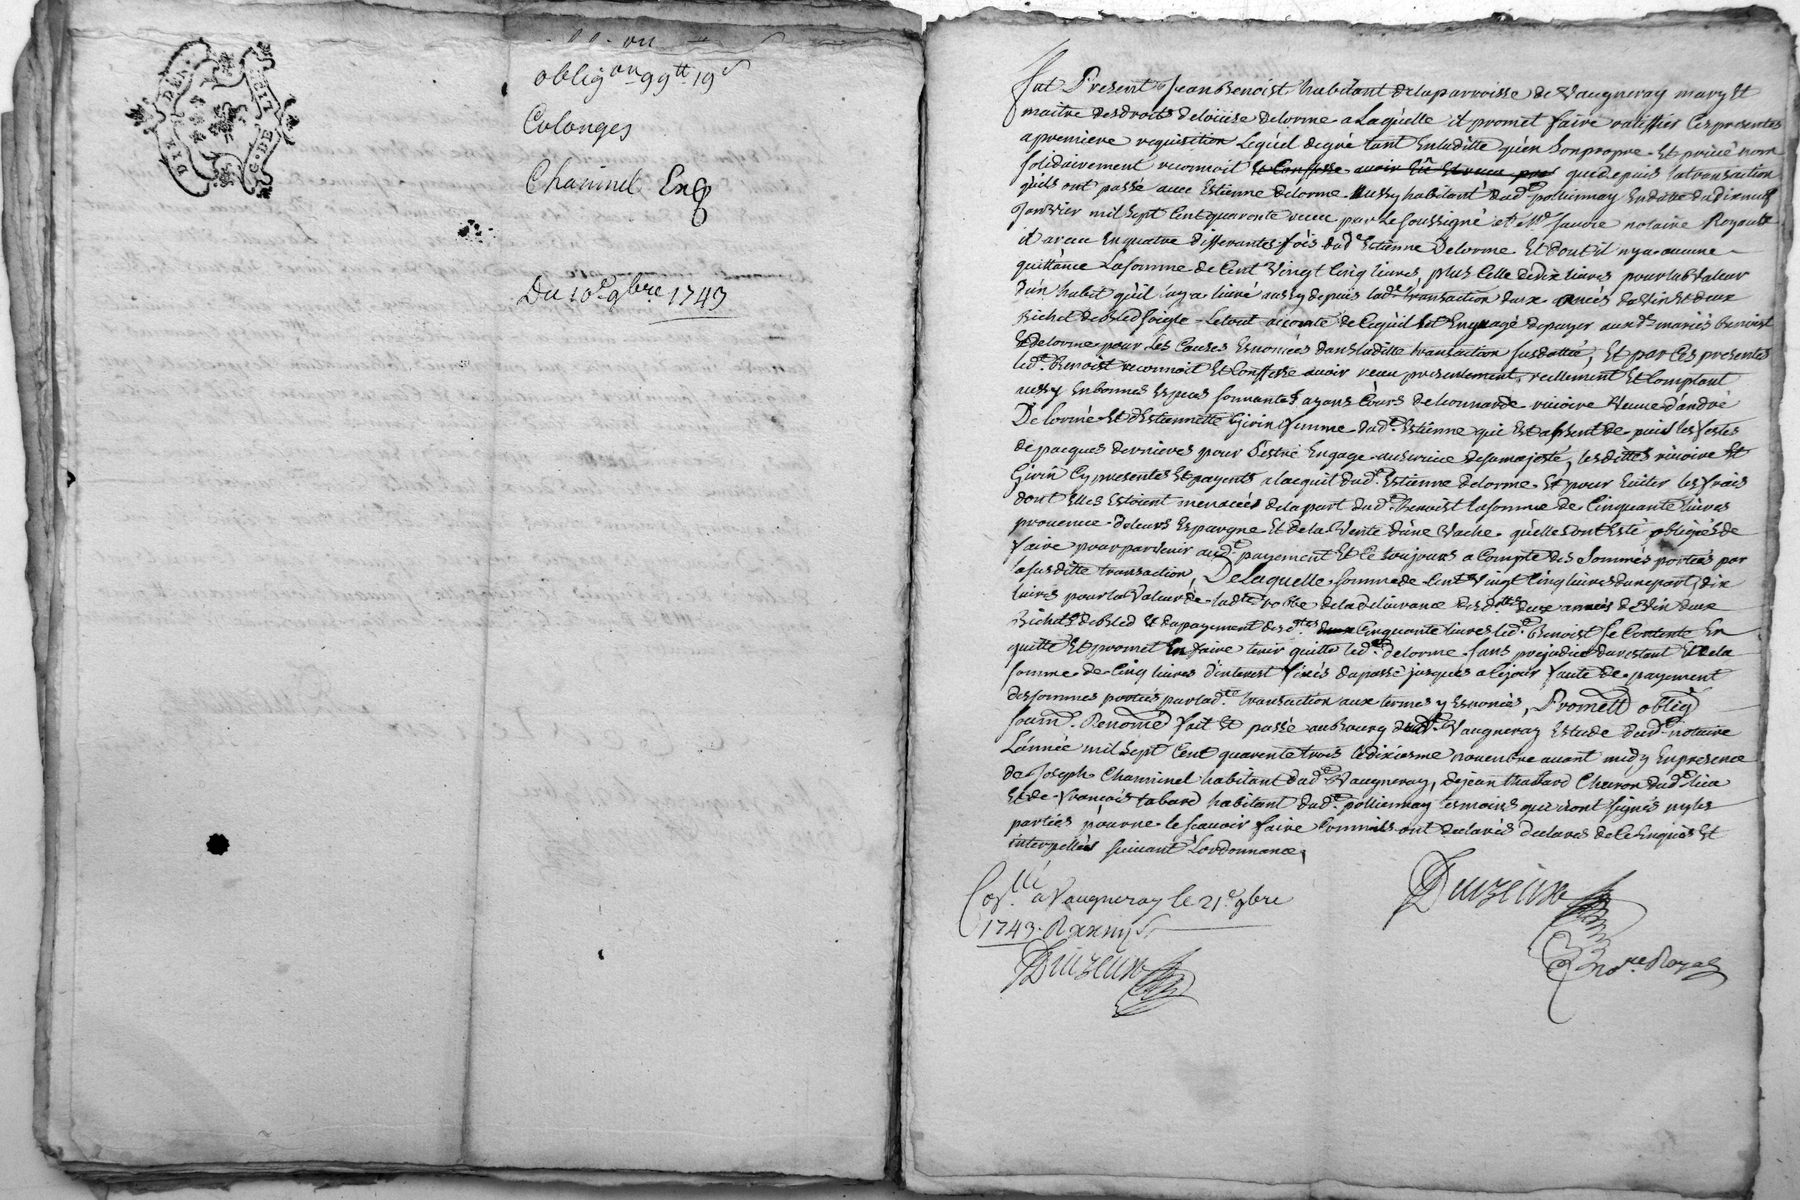 DIE DER
G. DE
oblig.on 99tt 19s
Colonges
Chaminel Exp
Du 10e 9bre 1743
fut Present Jean Benoist habitant de la parroisse de Vaugneray mary et
maitre des droits de Loüise delorme a Laquelle il promet faire ratiffier ces presentes
a premiere requisition Lequel de gré tant en laditte qu'en son propre et privé nom
solidairement reconnoit et Confesse avoir que depuis la transaction
qu'ils ont passé avec Estienne delorme aussy habitant dud. pollionnay en datte du dixneuf
Janvier mil sept Cent quarante receu par Le soussigné et Me faure notaire Royaux
il a receu en quatre differantes fois dud. Estienne Delorme et dont il n'y a aucune
quittance La somme de Cent Vingt Cinq livres, plus Celle de dix livres pour la Valeur
d'un habit qu'il luy a livré aussy depuis lad. transaction deux années de Vin et deux
Bichet de bled soigle Le tout a compte de Ce qu'il s'est Engagé de payer aux d. mariés Benoist
et delorme pour Les Causes Enoncées dans laditte transaction susdattée, et par Ces presentes
led. Benoist reconnoit et Confesse avoir receu presentement, reellement et Comptant
aussy en bonnes Especes sonnantes ayans Cours de Leonnarde rivoire Veuve d'andré
Delorme et d'Estiennette Givin femme dud. Estienne qui est absent depuis les festes
de pacques dernieres pour s'estre Engagé au service de sa majesté, lesdittes rivoire et
Givin Cy presentes et payants a l'acquit dud. Estienne delorme et pour Eviter les frais
dont Elles Estoient menacées de la part dud. Benoist la somme de Cinquante livres
provenue de leurs Espargne et de la Vente d'une Vache qu'elles ont Esté obligées de
faire pour parvenir aud. payement et Ce toujours a Compte des Sommes portées par
la susditte transaction, De laquelle somme de Cent Vingt Cinq livres d'une part, dix
livres pour la Valeur de ladte robbe de la delivrance desdttes deux années de Vin deux
Bichets de bled et du payement desdtes Cinquante livres led. Benoist se Contente En
quitte et promet En faire tenir quitte led. delorme sans prejudice du restant et de la
somme de Cinq livres d'interest fixés du passé jusques a Ce jour faute de payement
des sommes portées par lad.te transaction aux termes y Enoncés, Promett obligt
soumt Renoncé fait et passé au Bourg dud. Vaugneray Estude dud. notaire
L'année mil sept Cent quarente trois le dixiesme novembre avant midy En presence
de Joseph Chaminel habitant dud. Vaugneray, de jean thabard Charon dud. lieu
et de francois tabard habitant dud. pollionnay tesmoins qui n'ont signés ny les
parties pour ne le scavoir faire Comme ils ont declarés declarés de Ce Enquis et
interpellés suivant L'ordonnance,
Col.llé a Vaugneray le 21e 9bre
1743. R
no.re Royal